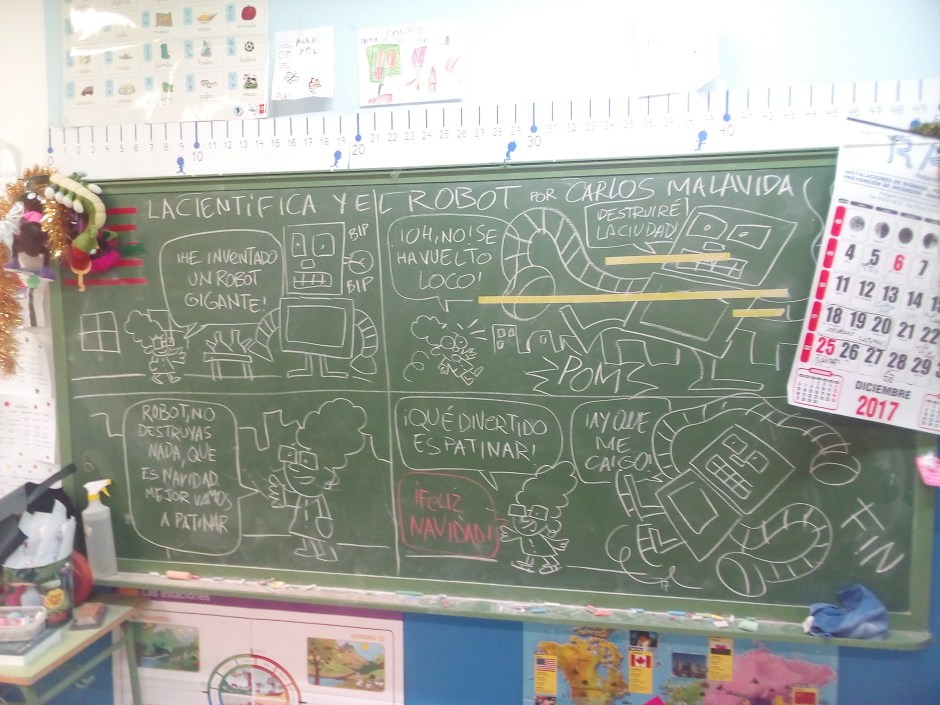 0 1 2 3 4 5 6 7 8 9 10 11 12 13 14 15 16 17 18 19 20 21 22 23 24 25 26 27 28 29 30
40
LA CIENTÍFICA Y EL ROBOT POR CARLOS MALAVIDA
¡HE INVENTADO
UN ROBOT
GIGANTE!
BIP
BIP
¡OH, NO! SE
HA VUELTO
LOCO!
¡DESTRUIRÉ
LA CIUDAD!
POM
ROBOT, NO
DESTRUYAS
NADA, QUE
ES NAVIDAD.
MEJOR VAMOS
A PATINAR
¡QUÉ DIVERTIDO
ES PATINAR!
¡FELIZ
NAVIDAD!
¡AY QUE
ME
CAIGO!
FIN
4 5 6 7
11 12 13 14 15
18 19 20 21 22
25 26 27 28 29
DICIEMBRE
2017
Las estaciones